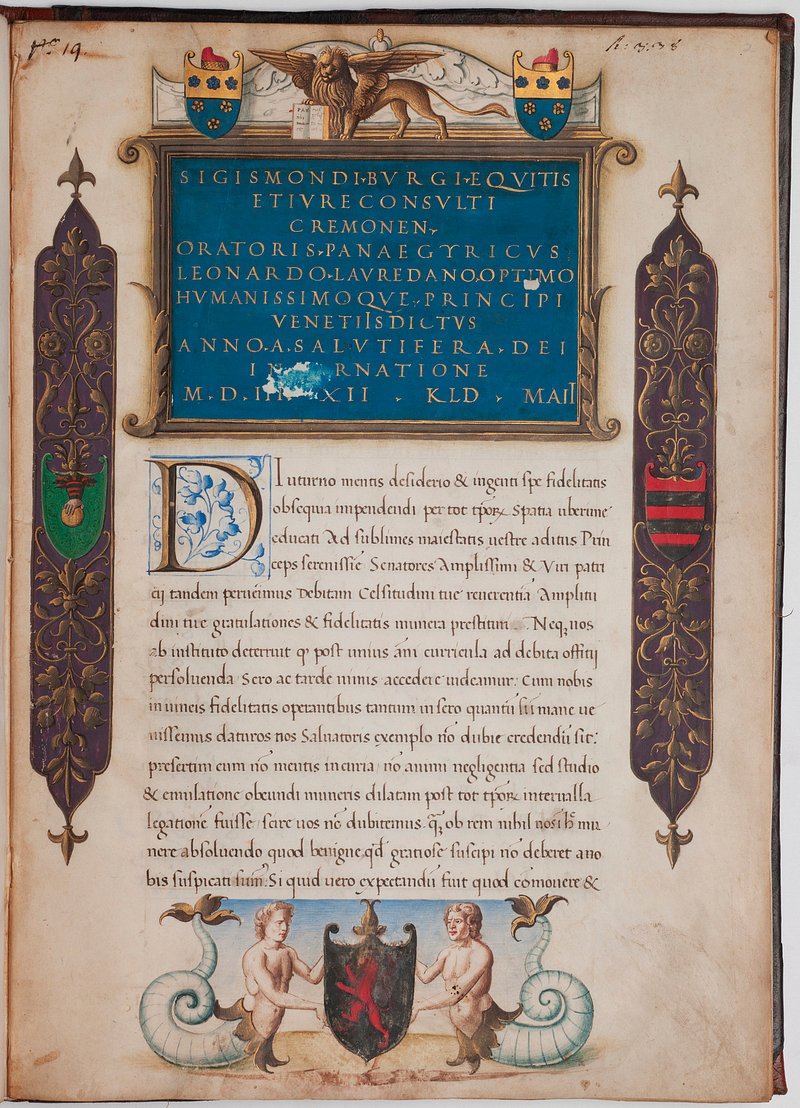 Nº 19.
SIGISMONDI BVRGI EQVITIS
ET IVRECONSVLTI
CREMONEN
ORATORIS PANAEGYRICVS
LEONARDO LAVREDANO OPTIMO
HVMANISSIMOQVE PRINCIPI
VENETIIS DICTVS
ANNO A SALVTIFERA DEI
RNATIONE
M. D. XII KLD MAII
Diuturno mentis desiderio & ingenti spe fidelitatis
obsequia impendendi per tot tpoꝝ Spatia uberime
educati Ad sublimes maiestatis uestre aditus Prin
ceps serenissie Senatores Amplissimi & Viri patri
cij tandem peruenimus Debitam Celsitudini tue reuerentia Amplitu
dini tue gratulationes & fidelitatis munera prestitum Neq; nos
ab instituto deterruit q post unius ani curricula ad debita offitij
persoluenda Sero ac tarde nimis accedere uideamur. Cum nobis
in uineis fidelitatis operantibus tantum in sero quantu sui mane ue
nissemus daturos nos Saluatoris exemplo no dubie credendu sit:
presertim cum no mentis incuria no animi negligentia sed studio
& emulatione obeundi muneris dilatam post tot tpoꝝ interualla
legatione fuisse scire uos no dubitemus. q̃ ob rem nihil nos mu
nere absoluendo quod benigne qd gratiose suscipi no deberet a no
bis suspicati sum. Si quid uero expectandu fuit quod comouere &